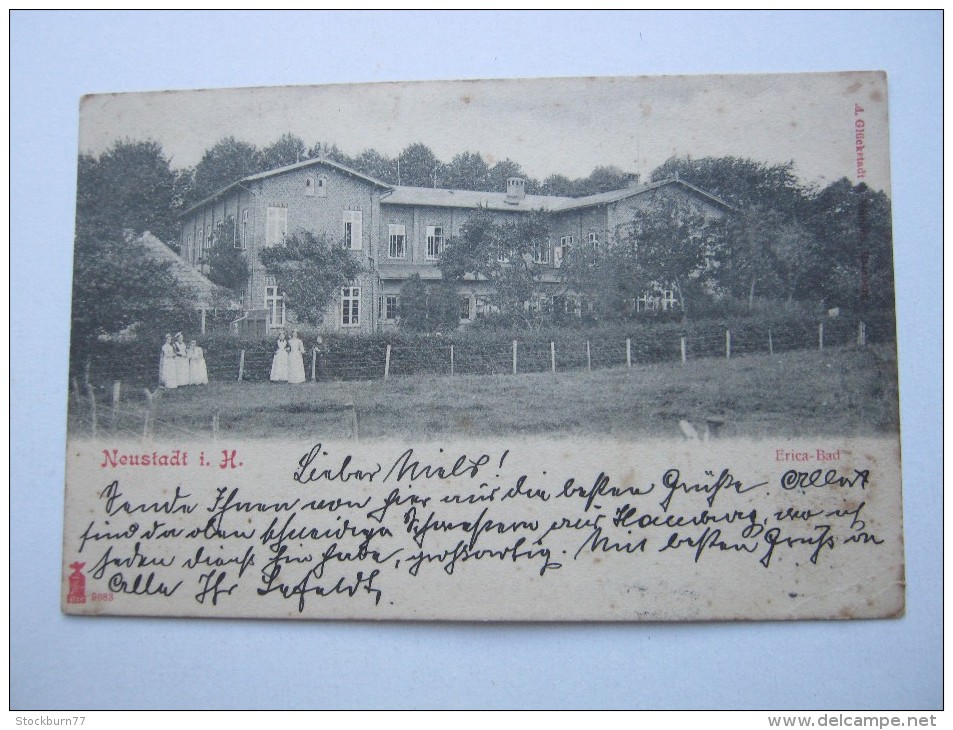 A. Glückstadt
Neustadt i. H.
Erica-Bad
Lieber Niels!
Sende Ihnen von hier aus die besten Grüße.
sind da oben schneidige Schwestern aus Hamburg, wo ich
jeden Dienst hin habe, großartig. Mit besten Gruß an
Alle Ihr
9683
Stockburn77
www.delcampe.net